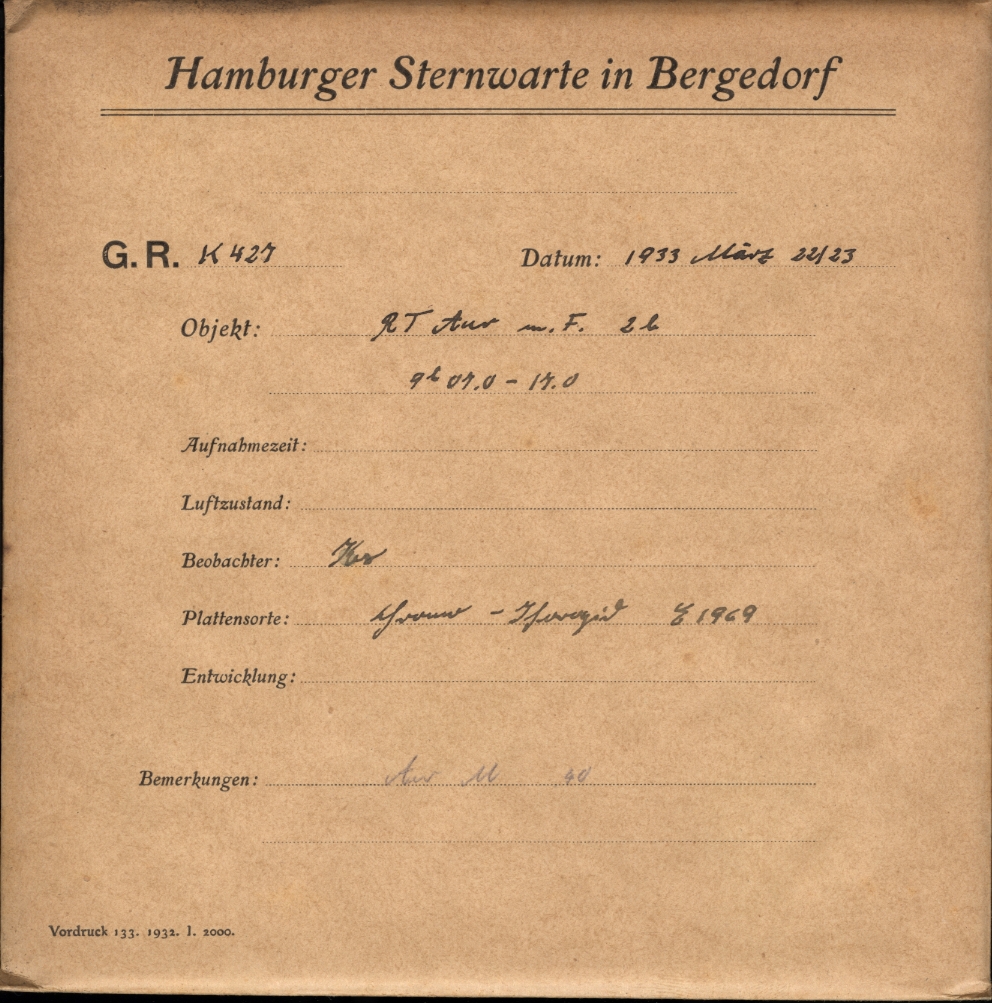 Hamburger Sternwarte in Bergedorf
G. R. K 427 Datum: 1933 März 22/23
Objekt: RT Aur m. F. 2 b
9h 07.0 - 17.0
Aufnahmezeit:
Luftzustand:
Beobachter:
Plattensorte: Chromo - Isorapid E 1969
Entwicklung:
Bemerkungen: Aur M 40
Vordruck 133. 1932. I. 2000.